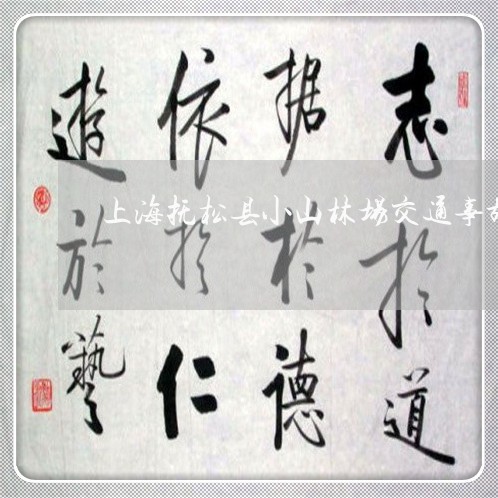 志於道
据於德
依於仁
遊於藝
上海抚松县小山林场交通事